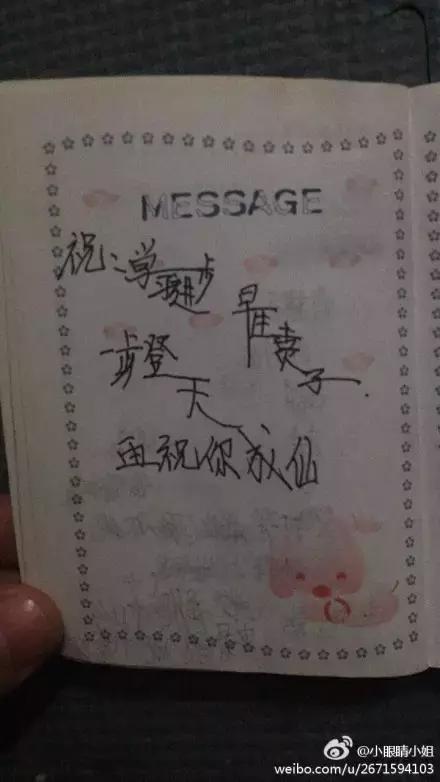 MESSAGE
祝：学习进步
早生贵子
一步登天
再祝你成仙
@小眼睛小姐
weibo.com/u/2671594103